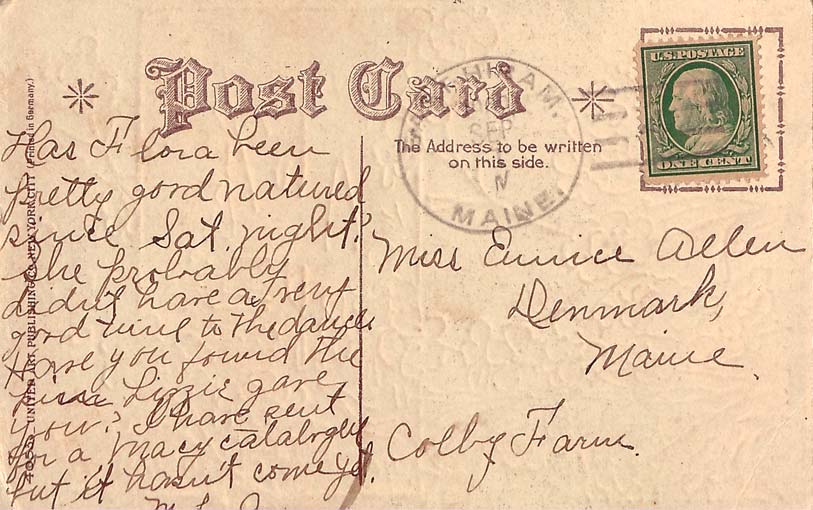 Post Card
The Address to be written
on this side.
HIRAM,
SEP
MAINE.
U.S. POSTAGE
ONE CENT
Has Flora been
pretty good natured
since Sat. night?
she probably
didn't have a very
good time to the dance
Have you found the
Lizzie gave
you? I have sent
for a Macy catalogue
but it hasn't come yet.
Miss Eunice Allen
Denmark,
Maine.
Colby Farm.
UNITED ART PUBLISHING CO NEW YORK CITY (Printed in Germany.)